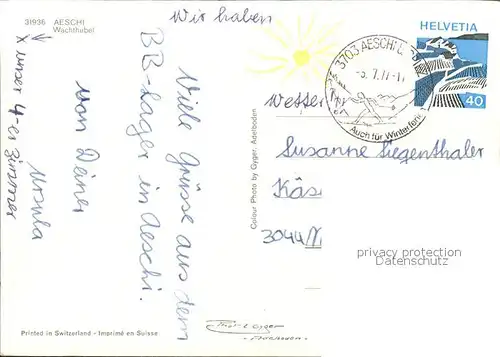 31936 AESCHI
Wachthubel
x unser 4-er Zimmer
Wir haben
Wetter
Viele Grüsse aus dem
BB-Lager in Aeschi.
von Deiner
Ursula
Printed in Switzerland - Imprimé en Suisse
Colour Photo by Gyger, Adelboden
Photo Gyger
Adelboden
3703 AESCHI
7.77-1
Auch für Winterferien
HELVETIA
40
Susanne Siegenthaler
Käs
3044
privacy protection
Datenschutz